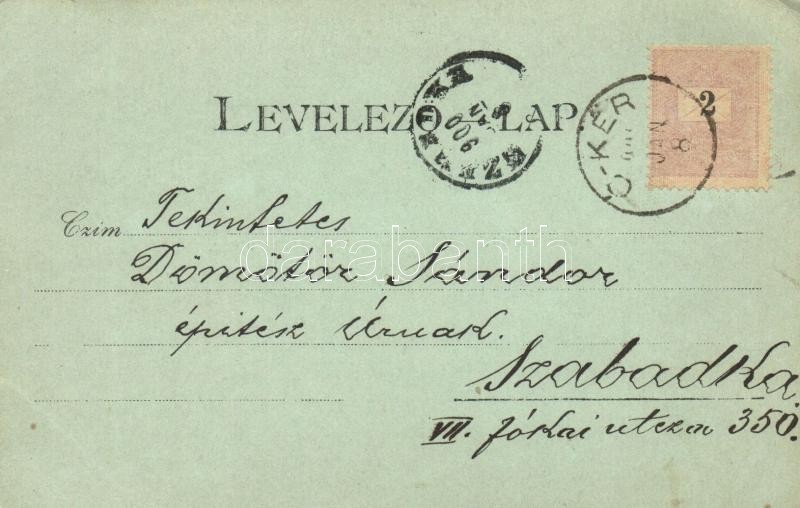 LEVELEZŐ-LAP
SZABADKA
900
JAN
Ó-KÉR
900
JAN
8
2
Czim Tekintetes
Dömötör Sándor
építész Úrnak.
Szabadka.
VII. Jókai utcza 350.
darabanth